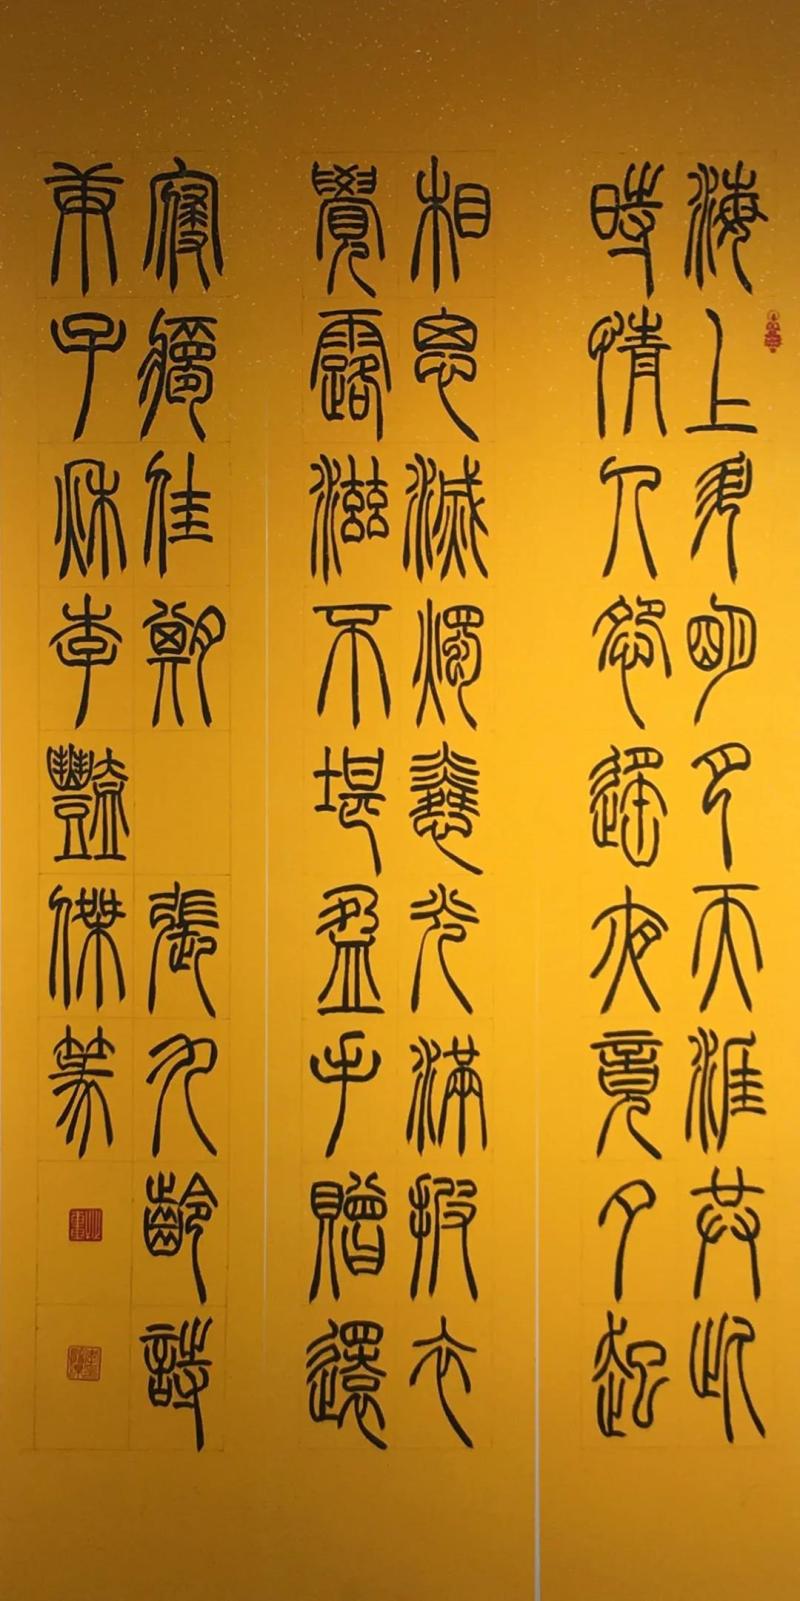 海上升明月天涯共此
時情人怨遙夜竟夕起
相思滅燭憐光滿披衣
覺露滋不堪盈手贈還
寢夢佳期 張九齡詩
庚子秋李豔傑篆